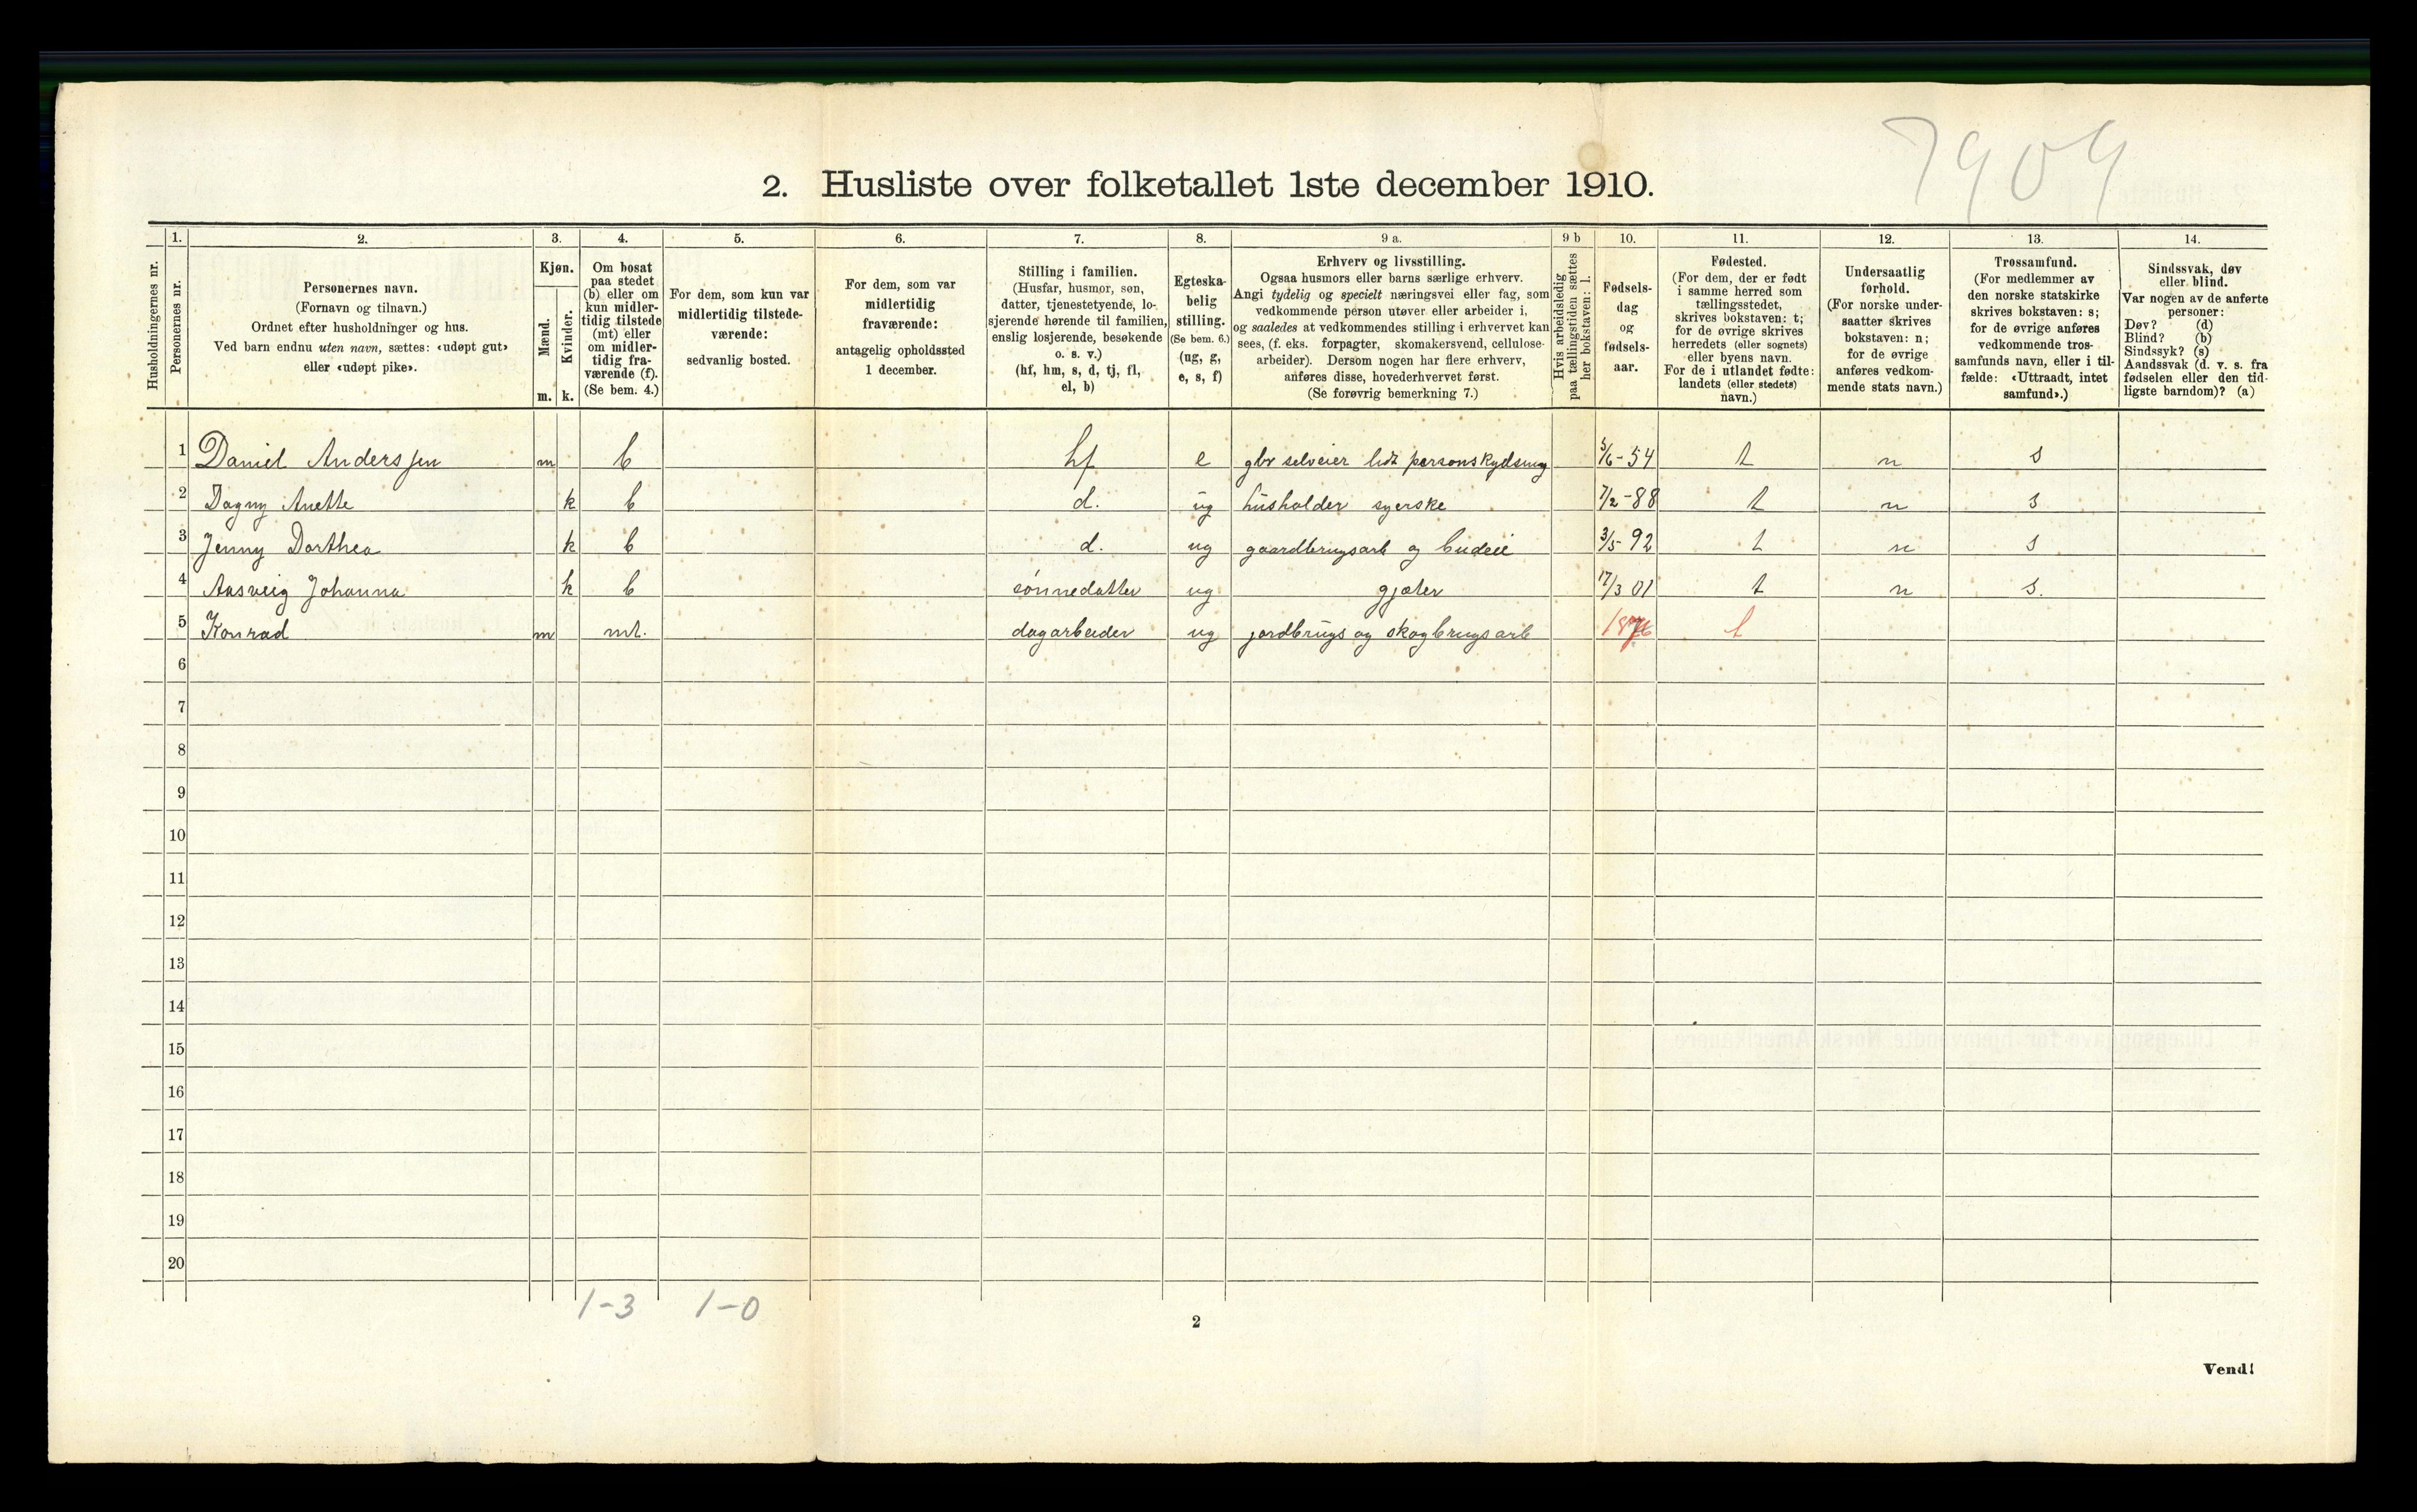 7909
2. Husliste over folketallet 1ste december 1910.
1. 2. 3. 4. 5. 6. 7. 8. 9 a. 9 b 10. 11. 12. 13. 14.
Husholdningernes nr.
Personernes nr.
Personernes navn.
(Fornavn og tilnavn.)
Ordnet efter husholdninger og hus.
Ved barn endnu uten navn, sættes: «udøpt gut»
eller «udøpt pike».
Kjøn.
Mænd.
Kvinder.
m. k.
Om bosat
paa stedet
(b) eller om
kun midler-
tidig tilstede
(mt) eller
om midler-
tidig fra-
værende (f).
(Se bem. 4.)
For dem, som kun var
midlertidig tilstede-
værende:
sedvanlig bosted.
For dem, som var
midlertidig
fraværende:
antagelig opholdssted
1 december.
Stilling i familien.
(Husfar, husmor, søn,
datter, tjenestetyende, lo-
sjerende hørende til familien,
enslig losjerende, besøkende
o. s. v.)
(hf, hm, s, d, tj, fl,
el, b)
Egteska-
belig
stilling.
(Se bem. 6.)
(ug, g,
e, s, f)
Erhverv og livsstilling.
Ogsaa husmors eller barns særlige erhverv.
Angi tydelig og specielt næringsvei eller fag, som
vedkommende person utøver eller arbeider i,
og saaledes at vedkommendes stilling i erhvervet kan
sees, (f. eks. forpagter, skomakersvend, cellulose-
arbeider). Dersom nogen har flere erhverv,
anføres disse, hovederhvervet først.
(Se forøvrig bemerkning 7.)
Hvis arbeidsledig
paa tællingstiden sættes
her bokstaven: l.
Fødsels-
dag
og
fødsels-
aar.
Fødested.
(For dem, der er født
i samme herred som
tællingsstedet,
skrives bokstaven: t;
for de øvrige skrives
herredets (eller sognets)
eller byens navn.
For de i utlandet fødte:
landets (eller stedets)
navn.)
Undersaatlig
forhold.
(For norske under-
saatter skrives
bokstaven: n;
for de øvrige
anføres vedkom-
mende stats navn.)
Trossamfund.
(For medlemmer av
den norske statskirke
skrives bokstaven: s;
for de øvrige anføres
vedkommende tros-
samfunds navn, eller i til-
fælde: «Uttraadt, intet
samfund».)
Sindssvak, døv
eller blind.
Var nogen av de anførte
personer:
Døv? (d)
Blind? (b)
Sindssyk? (s)
Aandssvak (d. v. s. fra
fødselen eller den tid-
ligste barndom)? (a)
1 Daniel Anderssen m b hf e gbr selveier lidt personskydsning 5/6-54 t n s
2 Dagny Anette k b d. ug husholder syerske 7/2-88 t n s
3 Jenny Dorthea k b d. ug gaardbrugsarb og budeie 3/5-92 t n s
4 Aasveig Johanna k b sønnedatter ug gjæter 17/3 01 t n s.
5 Konrad m mt. dagarbeider ug jordbrugs og skogbrugsarb t
6
7
8
9
10
11
12
13
14
15
16
17
18
19
20
1-3 1-0
2
Vend!